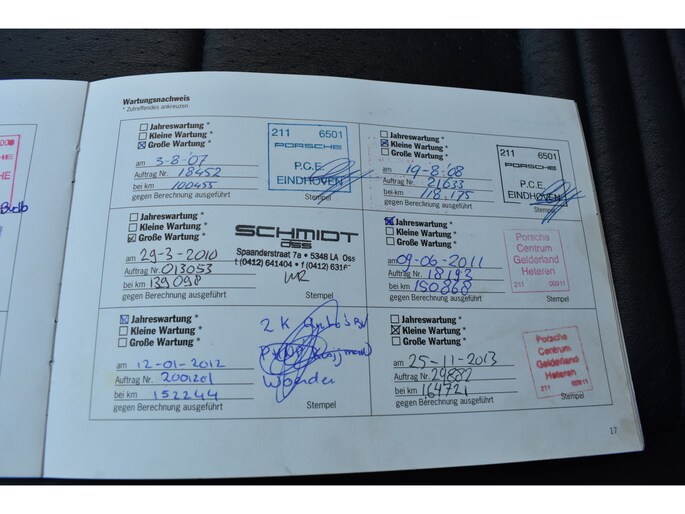 Wartungsnachweis
* Zutreffendes ankreuzen
Jahreswartung *
Kleine Wartung *
Große Wartung *
am 3-8-'07
Auftrag Nr. 18452
bei km 100455
gegen Berechnung ausgeführt
211 6501
PORSCHE
P.C.E.
EINDHOVEN
Stempel
Jahreswartung *
Kleine Wartung *
Große Wartung *
am 19-8-'08
Auftrag Nr. 21633
bei km 118.175
gegen Berechnung ausgeführt
211 6501
PORSCHE
P.C.E.
EINDHOVEN
Stempel
Jahreswartung *
Kleine Wartung *
Große Wartung *
am 29-3-2010
Auftrag Nr. 013053
bei km 139098
gegen Berechnung ausgeführt
SCHMIDT
OSS
Spaanderstraat 7a • 5348 LA Oss
t (0412) 641404 • f (0412)
Stempel
Jahreswartung *
Kleine Wartung *
Große Wartung *
am 09-06-2011
Auftrag Nr. 18193
bei km 150868
gegen Berechnung ausgeführt
Porsche
Centrum
Gelderland
Heteren
211 00911
Stempel
Jahreswartung *
Kleine Wartung *
Große Wartung *
am 12-01-2012
Auftrag Nr. 2001201
bei km 152244
gegen Berechnung ausgeführt
2 K
Stempel
Jahreswartung *
Kleine Wartung *
Große Wartung *
am 25-11-2013
Auftrag Nr. 29882
bei km 164721
gegen Berechnung ausgeführt
Porsche
Centrum
Gelderland
Heteren
211 00911
Stempel
17